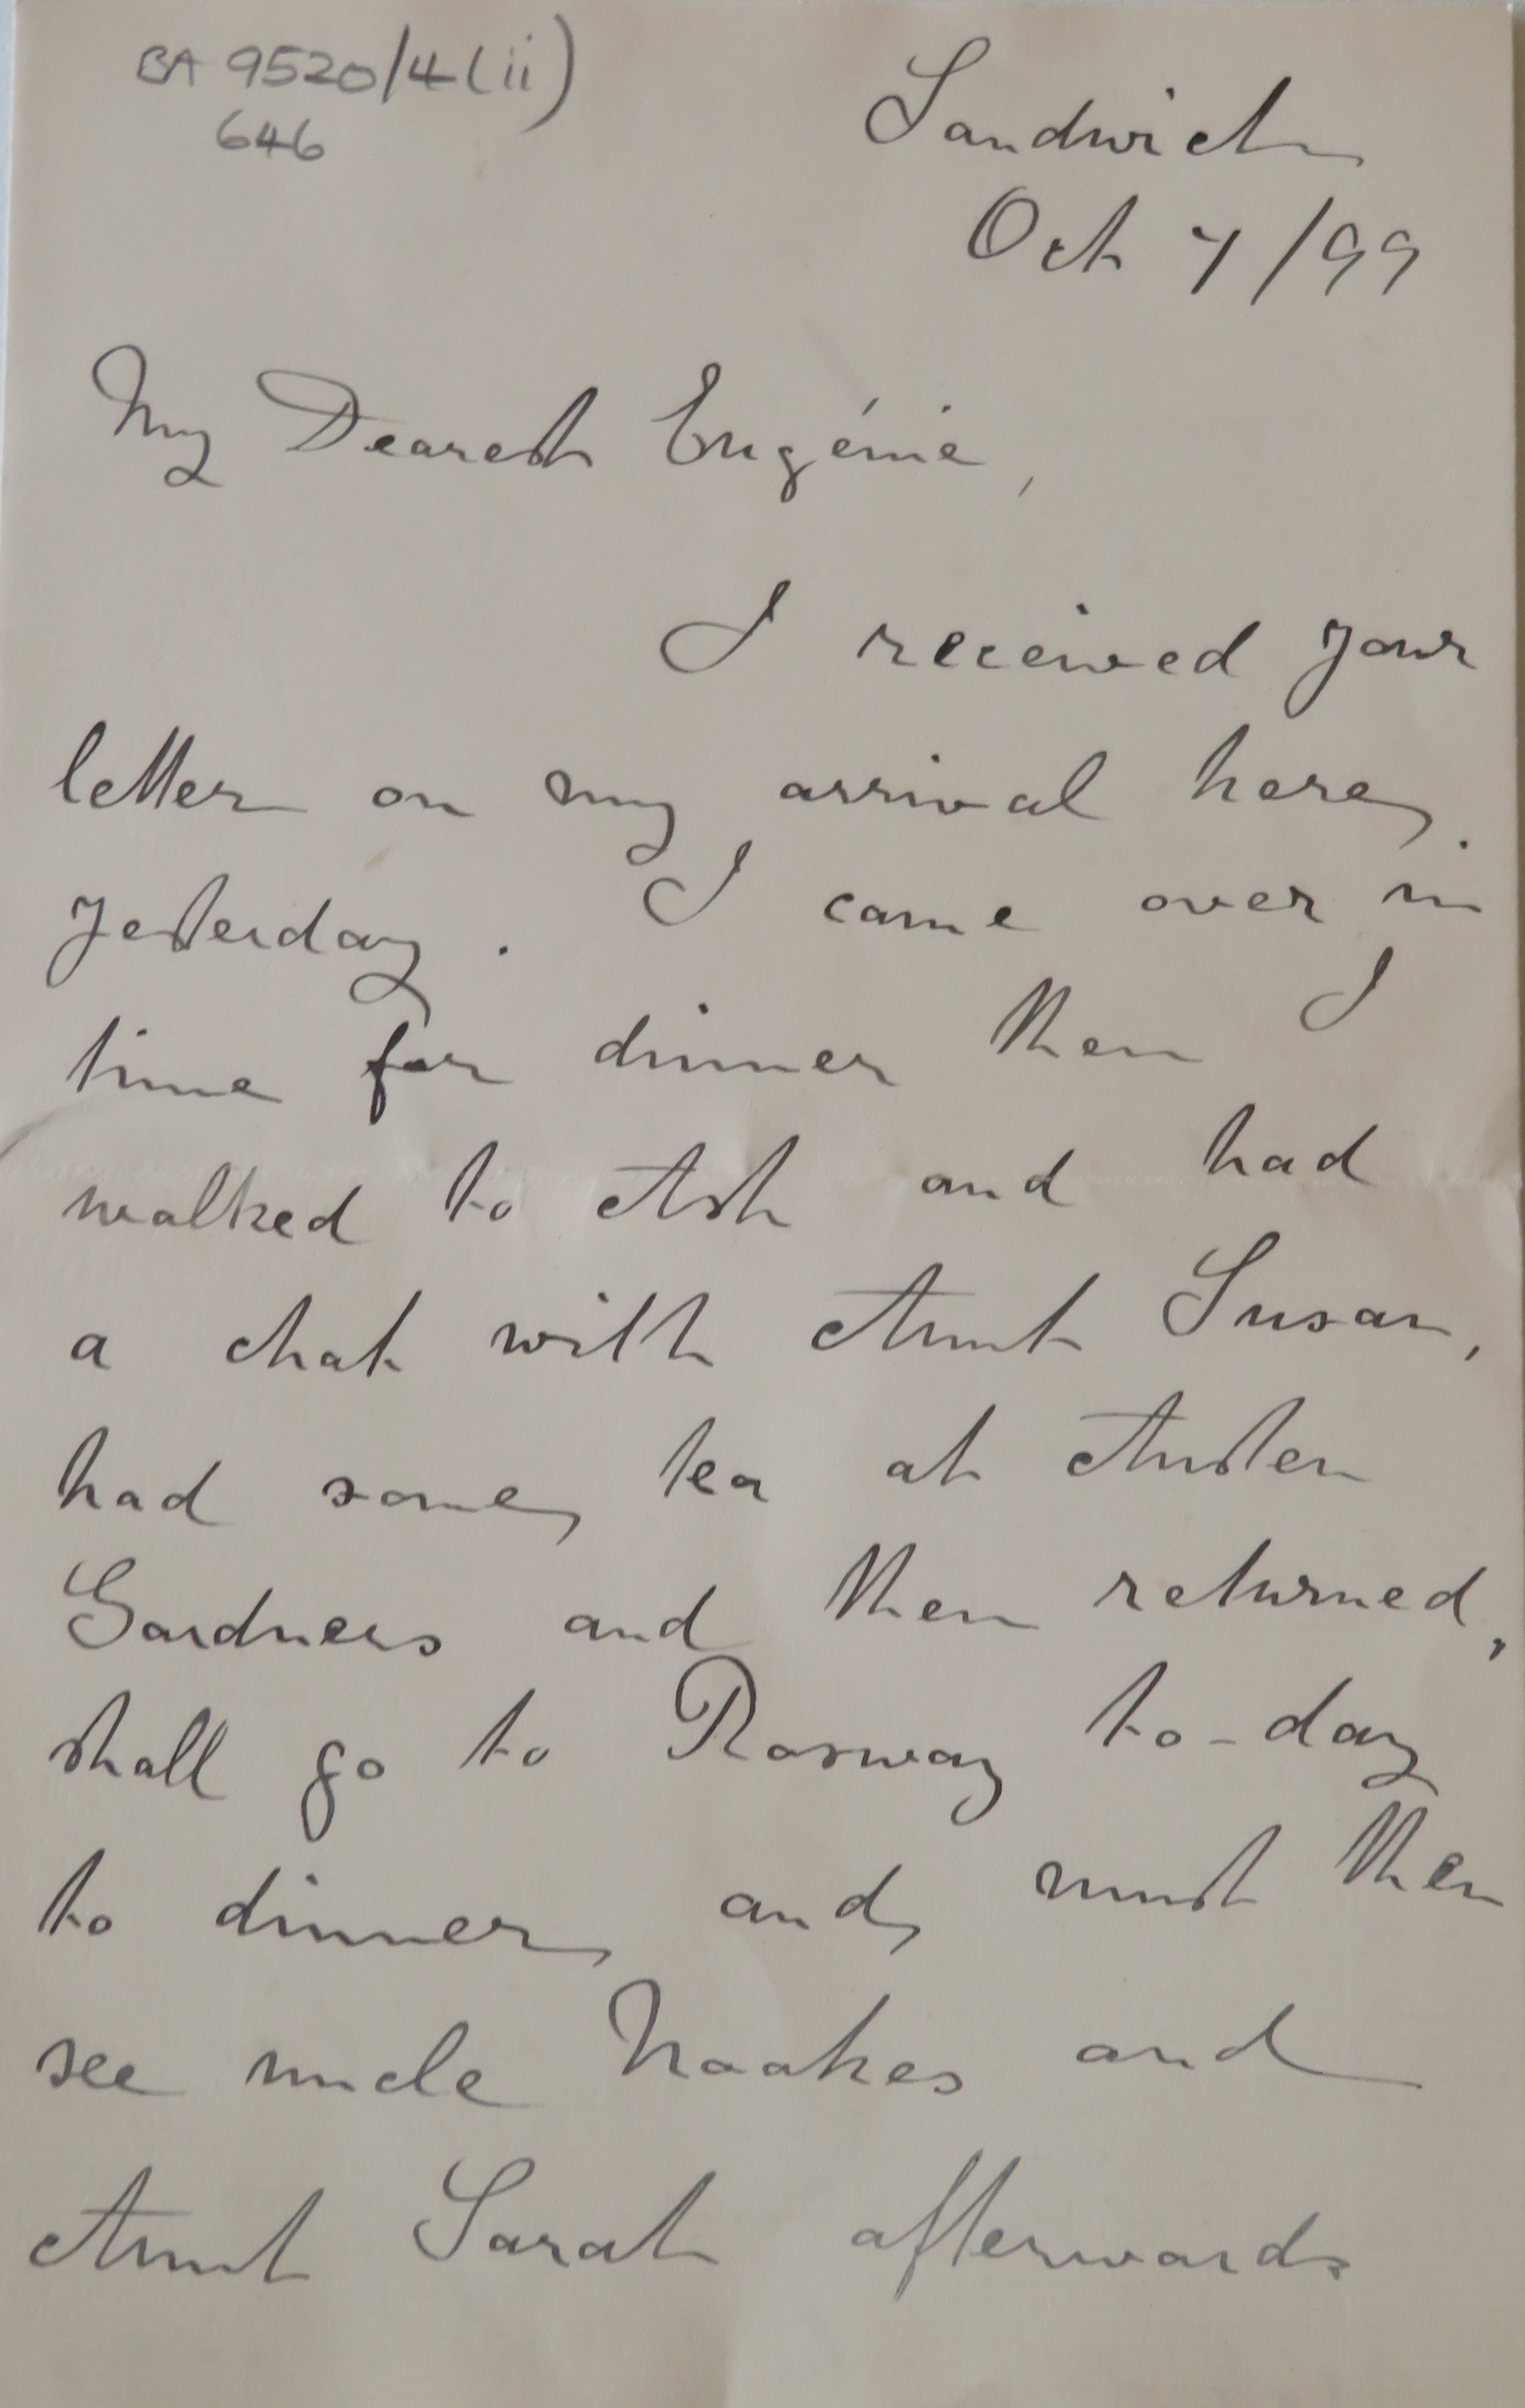 BA 9520/4(ii)
646
Sandwich
Oct 7/99
My Dearest Eugénie,
I received your
letter on my arrival here
yesterday. I came over in
time for dinner then I
walked to Ash and had
a chat with Aunt Susan,
had some tea at Austen
Gardners and then returned,
shall go to to-day
to dinner and must then
see uncle Noakes and
Aunt Sarah afterwards